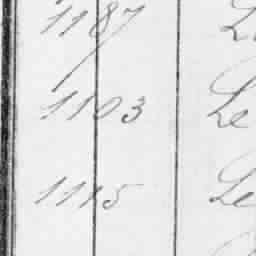 1187 L
1103 Le
1115 Le